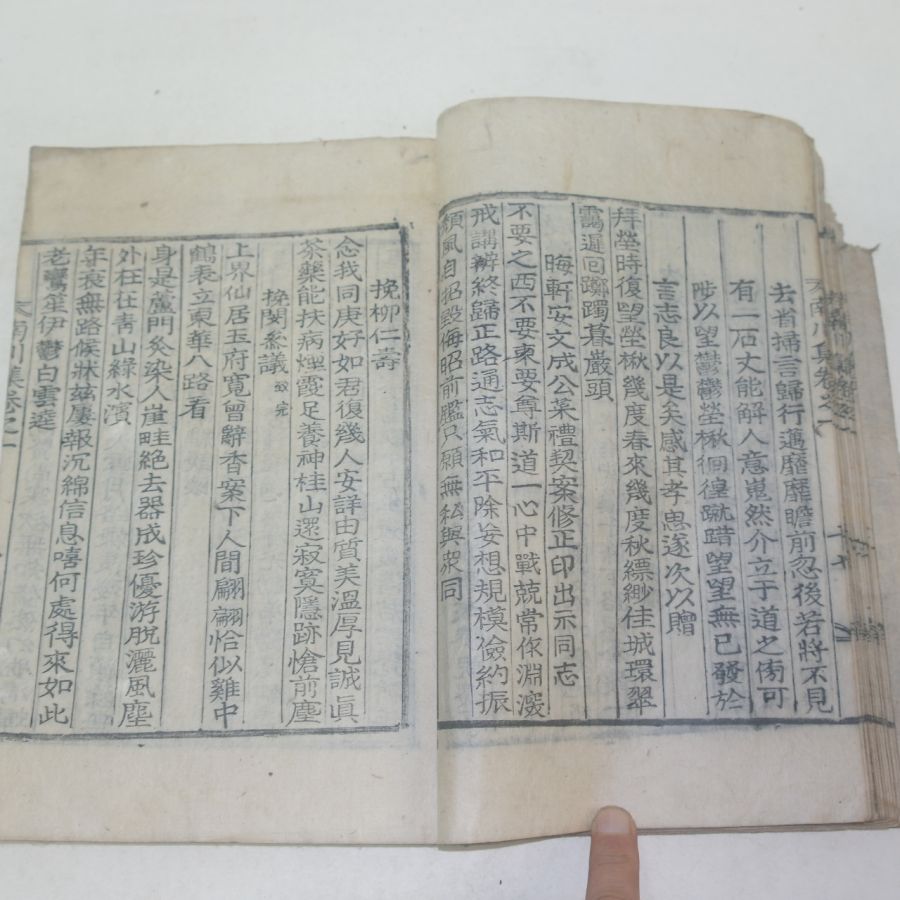 去省掃言歸行邁靡靡瞻前忽後若將不見
有一石丈能解人意嵬然介立于道之傍可
陟以望鬱鬱塋楸徊徨蹴踖望望無已發於
言志良以是矣感其孝思遂次以贈
拜塋時復望塋楸幾度春來幾度秋縹緲佳城環翠
靄遲回躑躅暮巖頭
晦軒安文成公菜禮契案修正印出示同志
不要之西不要東要尊斯道一心中戰兢常作淵邃
戒講辨終歸正路通志氣和平除妄想規模儉約振
頹風自招毀侮昭前鑑只願無私與衆同
挽柳仁壽
念我同庚好如君復幾人安詳由質美溫厚見誠眞
茶藥能扶病煙霞足養神桂山還寂寞隱跡愴前塵
挽閔叅議 致完
上界仙居玉府寬曾辭香案下人間翩翩恰似雞中
鶴表立東華八路看
身是蘆門炙染人崖畦絶去器成珍優游脫灑風塵
外在在靑山綠水濱
年衰無路候狀玆屢報沉綿信息嘻何處得來如此
老鸞笙伊鬱白雲逵